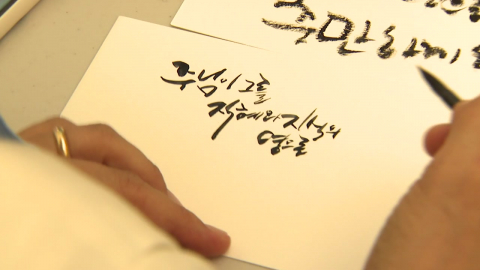 충만하게
주님이 그를
지혜와 지식의
영으로